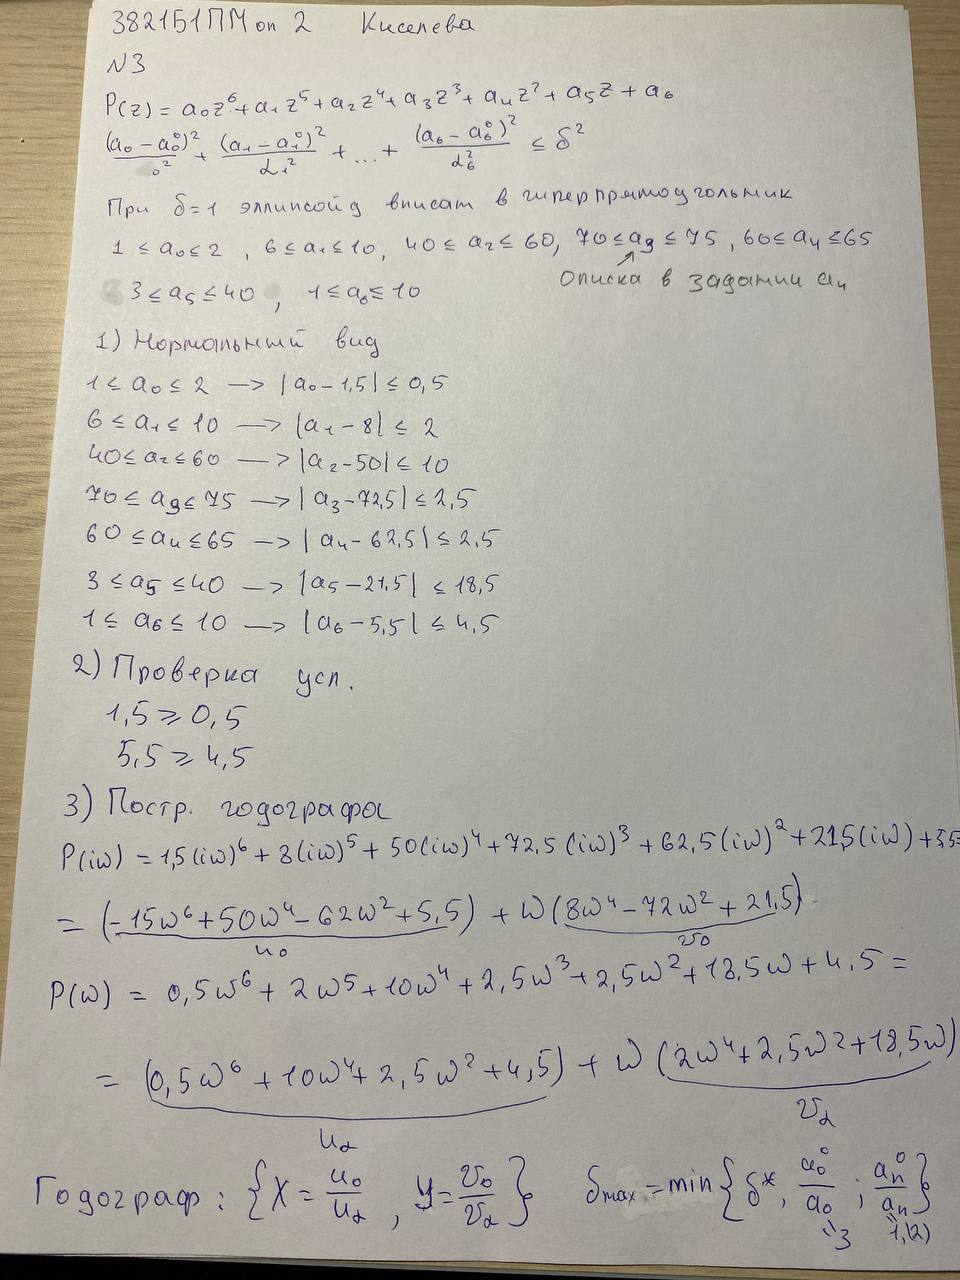 3821Б1ПМоп 2 Киселева
№3
P(z) = a₀z⁶ + a₁z⁵ + a₂z⁴ + a₃z³ + a₄z² + a₅z + a₆
(a₀ - a₀⁰)²/₀² + (a₁ - a₁⁰)²/α₁² + ... + (a₆ - a₆⁰)²/α₆² ≤ δ²
При δ=1 эллипсоид вписат в гиперпрямоугольник
1 ≤ a₀ ≤ 2 , 6 ≤ a₁ ≤ 10, 40 ≤ a₂ ≤ 60, 70 ≤ a₃ ≤ 75 , 60 ≤ a₄ ≤ 65
Описка в задании a₄
3 ≤ a₅ ≤ 40 , 1 ≤ a₆ ≤ 10
1) Нормальный вид
1 ≤ a₀ ≤ 2 —> |a₀ - 1,5| ≤ 0,5
6 ≤ a₁ ≤ 10 —> |a₁ - 8| ≤ 2
40 ≤ a₂ ≤ 60 —> |a₂ - 50| ≤ 10
70 ≤ a₃ ≤ 75 —> |a₃ - 72,5| ≤ 2,5
60 ≤ a₄ ≤ 65 —> |a₄ - 62,5| ≤ 2,5
3 ≤ a₅ ≤ 40 —> |a₅ - 21,5| ≤ 18,5
1 ≤ a₆ ≤ 10 —> |a₆ - 5,5| ≤ 4,5
2) Проверка усл.
1,5 ⩾ 0,5
5,5 ⩾ 4,5
3) Постр. годографа
P(iω) = 1,5(iω)⁶ + 8(iω)⁵ + 50(iω)⁴ + 72,5(iω)³ + 62,5(iω)² + 21,5(iω) +
= (-15ω⁶ + 50ω⁴ - 62ω² + 5,5) + ω(8ω⁴ - 72ω² + 21,5)
u₀ v₀
P(ω) = 0,5ω⁶ + 2ω⁵ + 10ω⁴ + 2,5ω³ + 2,5ω² + 18,5ω + 4,5 =
= (0,5ω⁶ + 10ω⁴ + 2,5ω² + 4,5) + ω(2ω⁴ + 2,5ω² + 18,5ω)
u_α v_α
Годограф: {X = u₀/u_α , y = v₀/v_α} δmax = min{δ*, a₀⁰/a₀ ; aₙ⁰/aₙ}
"3 "1,(2)